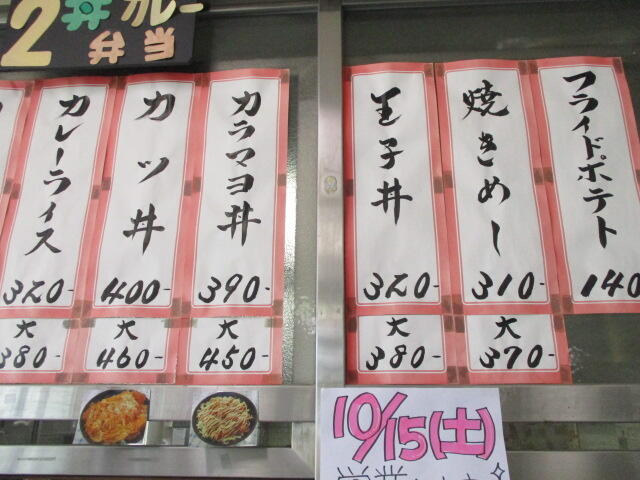 2
丼
カレー
弁当
カレーライス
320-
大
380-
カツ丼
400-
大
460-
カラマヨ丼
390-
大
450-
玉子丼
320-
大
380-
焼きめし
310-
大
370-
フライドポテト
140
10/15(土)
営業